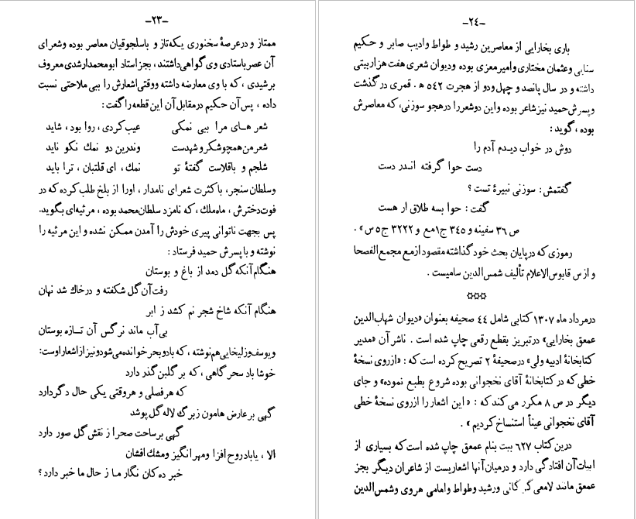 -۲۳-
ممتاز و در عرصهٔ سخنوری یکه‌تاز و باسلجوقیان معاصر بوده و شعرای
آن عصر باستادی وی گواهی داشتند، بجز استاد ابومحمد رشدی معروف
برشیدی، که با وی معارضه داشته و وقتی اشعارش را ببی ملاحتی نسبت
داده، پس آن حکیم درمقابل آن این قطعه را گفت:
شعر های مرا ببی نمکی عیب کردی، روا بود، شاید
شعر من همچو شکر و شهدست وندرین دو نمك نکو ناید
شلجم و باقلاست گفتهٔ تو نمك، ای قلتبان، ترا باید
و سلطان سنجر، با کثرت شعرای نامدار، اورا از بلخ طلب کرده که در
فوت دخترش، ماه ملك، که نامزد سلطان محمد بوده، مرثیه‌ای بگوید.
پس بجهت ناتوانی پیری خودش را آمدن ممکن نشده و این مرثیه را
نوشته و باپسرش حمید فرستاد:
هنگام آنکه گل دمد از باغ و بوستان
رفت آن گل شکفته و در خاك شد نهان
هنگام آنکه شاخ شجر نم کشد ز ابر
بی‌آب ماند نرگس آن تازه بوستان
و یوسف و زلیخایی هم نوشته، که بادو بحر خوانده می‌شود و نیز از اشعار اوست:
خوشا باد سحرگاهی، که بر گلبن گذر دارد
که هر فصلی و هر وقتی یکی حال دگر دارد
گهی بر عارض هامون زبرگ لاله گل پوشد
گهی بر ساحت صحرا ز نقش گل صور دارد
الا، یا باد روح افزا و مهر انگیز و مشك افشان
خبر ده کان نگار ما ز حال ما خبر دارد؟
-۲٤-
باری بخارایی از معاصرین رشید و طواط و ادیب صابر و حکیم
سنایی و عثمان مختاری و امیر معزی بوده و دیوان شعری هفت هزار بیتی
داشته و در سال پانصد و چهل و دو از هجرت ٥٤٢ ه‍. قمری در گذشت
و پسرش حمید نیز شاعر بوده و این دو شعر را در هجو سوزنی، که معاصرش
بوده، گوید:
دوش در خواب دیدم آدم را
دست حوا گرفته اندر دست
گفتمش: سوزنی نبیرهٔ تست؟
گفت: حوا بسه طلاق ار هست
ص ۳٦ سفینه و ۳٤٥ ج ۱ مع و ۳۲۲۲ ج ٥ س».
رموزی که در پایان بحث خود گذاشته مقصود از مع مجمع الفصحا
و از س قاموس الاعلام تألیف شمس‌الدین سامیست.
***
در مرداد ماه ۱۳۰۷ کتابی شامل ٤٤ صحیفه بعنوان «دیوان شهاب‌الدین
عمعق بخارایی» در تبریز بقطع رقعی چاپ شده است. ناشر آن «مدیر
کتابخانهٔ ادبیه ولی» در صحیفهٔ ۲ تصریح کرده است که: «از روی نسخهٔ
خطی که در کتابخانهٔ آقای نخجوانی بوده شروع بطبع نموده» و جای
دیگر در ص ۸ مکرر می‌کند که: «این اشعار را از روی نسخهٔ خطی
آقای نخجوانی عیناً استنساخ کردیم».
درین کتاب ٦۲۷ بیت بنام عمعق چاپ شده است که بسیاری از
ابیات آن افتادگی دارد و درمیان آنها اشعاریست از شاعران دیگر بجز
عمعق مانند لامعی گرگانی و رشید و طواط و امامی هروی و شمس‌الدین